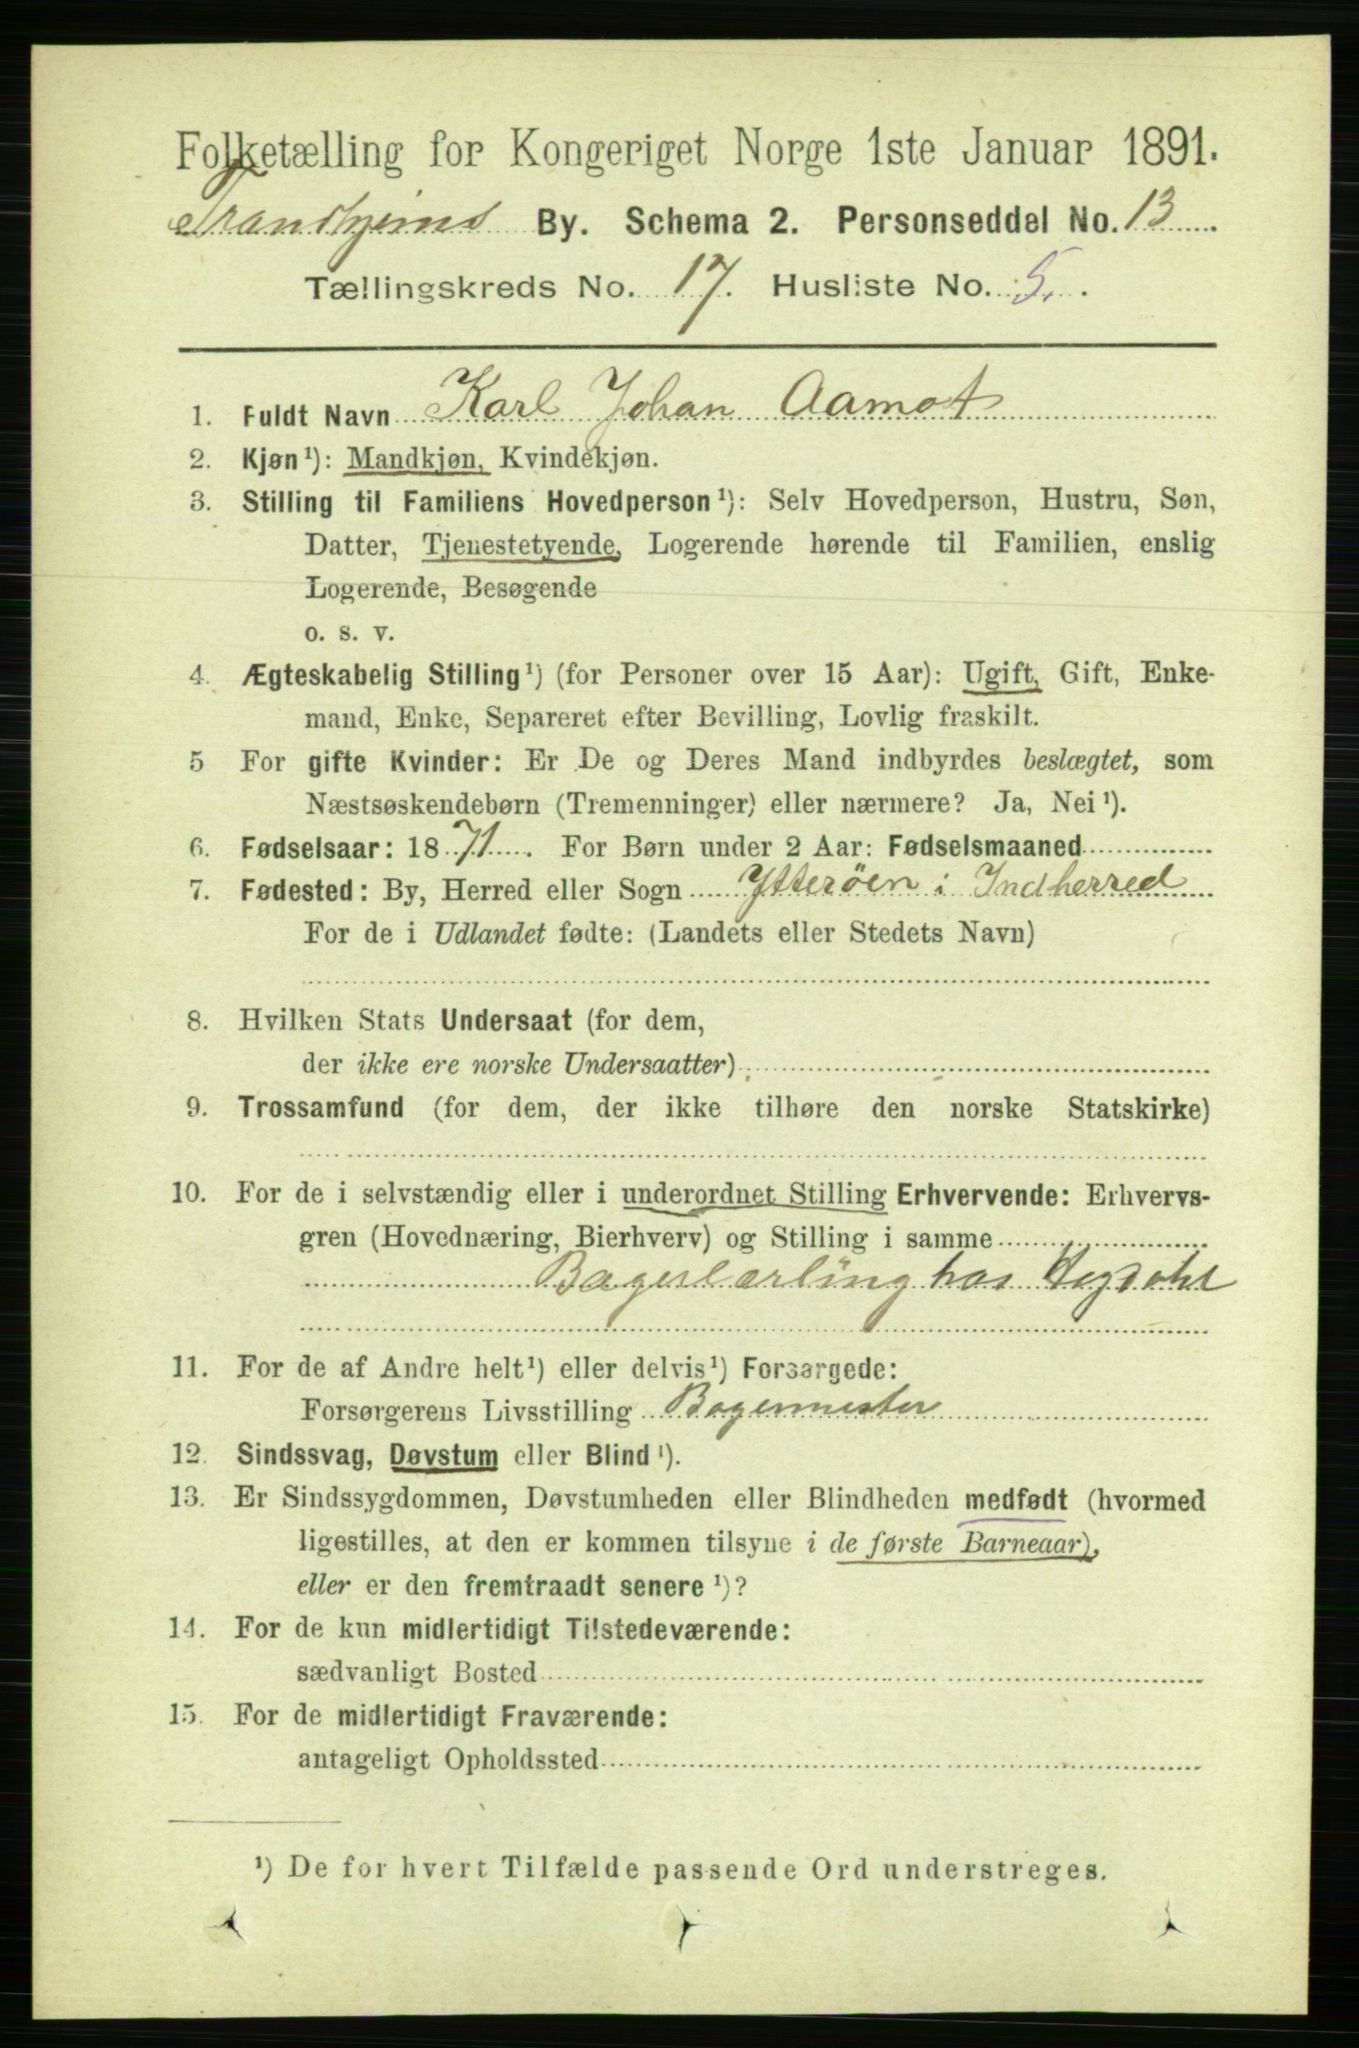 Folketælling for Kongeriget Norge 1ste Januar 1891.
Trondhjems By. Schema 2. Personseddel No. 13
Tællingskreds No. 17. Husliste No. 5.
1. Fuldt Navn Karl Johan Aamot
2. Kjøn¹): Mandkjøn, Kvindekjøn.
3. Stilling til Familiens Hovedperson¹): Selv Hovedperson, Hustru, Søn,
Datter, Tjenestetyende, Logerende hørende til Familien, enslig
Logerende, Besøgende
o. s. v.
4. Ægteskabelig Stilling¹) (for Personer over 15 Aar): Ugift, Gift, Enke-
mand, Enke, Separeret efter Bevilling, Lovlig fraskilt.
5 For gifte Kvinder: Er De og Deres Mand indbyrdes beslægtet, som
Næstsøskendebørn (Tremenninger) eller nærmere? Ja, Nei¹).
6. Fødselsaar: 1871. For Børn under 2 Aar: Fødselsmaaned
7. Fødested: By, Herred eller Sogn Ytteröen i Indherred
For de i Udlandet fødte: (Landets eller Stedets Navn)
8. Hvilken Stats Undersaat (for dem,
der ikke ere norske Undersaatter)
9. Trossamfund (for dem, der ikke tilhøre den norske Statskirke)
10. For de i selvstændig eller i underordnet Stilling Erhvervende: Erhvervs-
gren (Hovednæring, Bierhverv) og Stilling i samme
Bagerlærling hos Hegdahl
11. For de af Andre helt¹) eller delvis¹) Forsørgede:
Forsørgerens Livsstilling Bagermester
12. Sindssvag, Døvstum eller Blind¹).
13. Er Sindssygdommen, Døvstumheden eller Blindheden medfødt (hvormed
ligestilles, at den er kommen tilsyne i de første Barneaar),
eller er den fremtraadt senere¹)?
14. For de kun midlertidigt Tilstedeværende:
sædvanligt Bosted
15. For de midlertidigt Fraværende:
antageligt Opholdssted
¹) De for hvert Tilfælde passende Ord understreges.